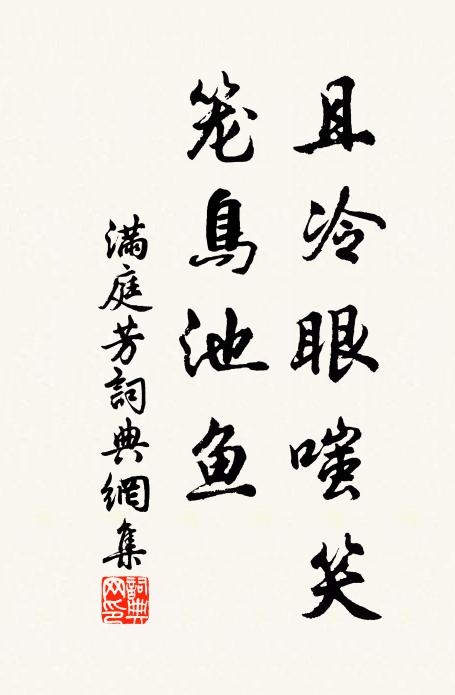 且冷眼嗤笑
笼鳥池鱼
满庭芳詞典網集
詞典网印